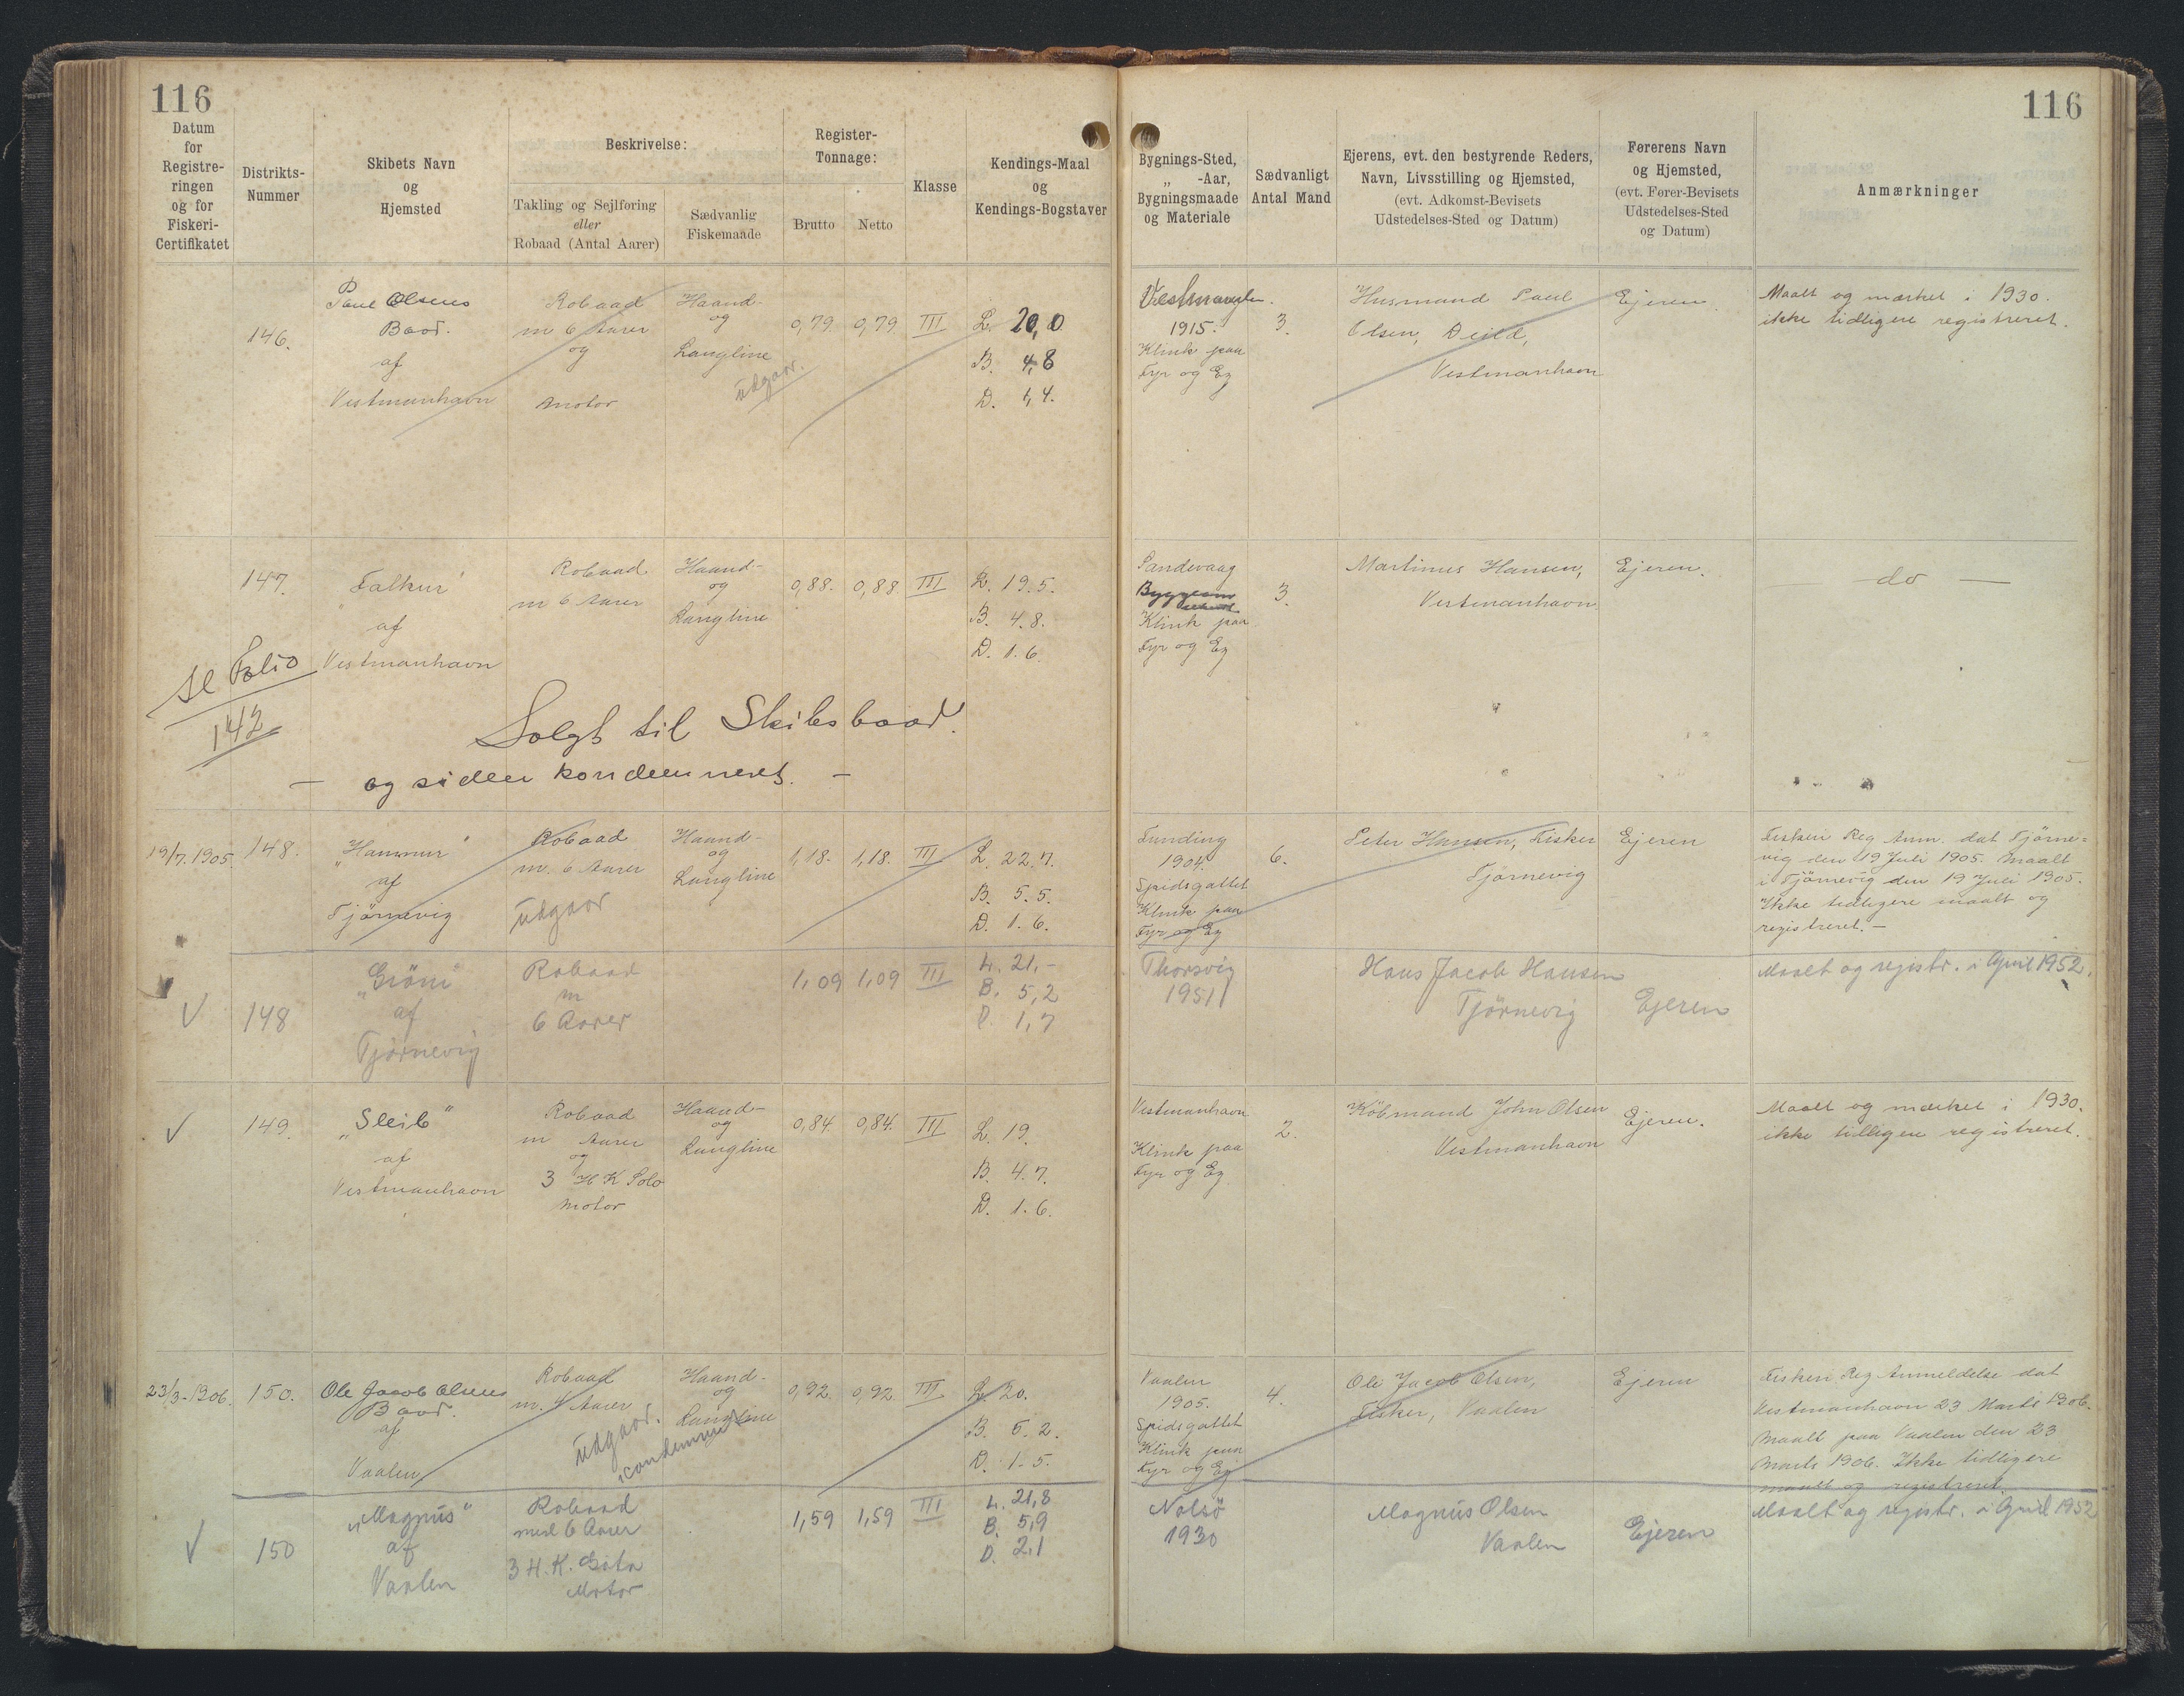 116
116
Datum
for
Registre-
ringen
og for
Fiskeri-
Certifikatet
Distrikts-
Nummer
Skibets Navn
og
Hjemsted
Beskrivelse:
Takling og Sejlføring
eller
Robaad (Antal Aarer)
Sædvanlig
Fiskemaade
Register-
Tonnage:
Brutto
Netto
Klasse
Kendings-Maal
og
Kendings-Bogstaver
Bygnings-Sted,
„ -Aar,
Bygningsmaade
og Materiale
Sædvanligt
Antal Mand
Ejerens, evt. den bestyrende Reders,
Navn, Livsstilling og Hjemsted,
(evt. Adkomst-Bevisets
Udstedelses-Sted og Datum)
Førerens Navn
og Hjemsted,
(evt. Fører-Bevisets
Udstedelses-Sted
og Datum)
Anmærkninger
146.
Paul Olsens
Baad.
af
Vestmanhavn
Robaad
m 6 Aarer
og
Motor
Haand-
og
Langline
udgaar.
0,79.
0,79
III
L. 20,0
B. 4,8
D. 1,4.
1915.
Klink paa
Fyr og Eg
3.
Husmand Paul
Olsen,
Vestmanhavn
Ejeren
Maalt og mærket i 1930.
ikke tidligere registreret.
147.
„Falkur"
af
Vestmanhavn
Robaad
m 6 Aarer
Haand-
og
Langline
0,88.
0,88
III
L. 19.5.
B. 4.8.
D. 1.6.
Sandevaag
Klink paa
Fyr og Eg
3.
Martinus Hansen,
Vestmanhavn.
Ejeren.
— do —
Folio
142
Solgt til Skibsbaad.
— og siden kondemneret. —
19/7. 1905.
148.
„Hammur"
af
Tjörnevig
Robaad
m. 6 Aarer
udgaar
Haand-
og
Langline
1,18.
1,18.
III
L. 22.7.
B. 5.5.
D. 1.6.
Funding
1904.
Spidsgattet
Klink paa
Fyr og Eg
6.
Peter Hansen, Fisker
Tjörnevig
Ejeren
Fiskeri Reg Anm. dat Tjörne-
vig den 19 Juli 1905. Maalt
i Tjörnevig den 19 Juli 1905.
Ikke tidligere maalt og
registreret. —
148
af
Tjørnevig
Robaad
m
6 Aarer
1,09
1,09
III
L. 21,-
B. 5,2
D. 1,7
Thorsvig
1951
Hans Jacob Hansen
Tjørnevig
Ejeren
Maalt og registr. i April 1952.
149.
„Sleib"
af
Vestmanhavn
Robaad
m Aarer
og
3 HK Solo
Motor
Haand-
og
Langline
0,84
0,84.
III
L. 19.
B. 4.7.
D. 1.6.
Vestmanhavn
Klink paa
Fyr og Eg
2.
Köbmand John Olsen
Vestmanhavn
Ejeren.
Maalt og mærket i 1930.
ikke tidligere registreret.
23/3-1906.
150.
Ole Jacob Olsens
Baad.
af
Vaalen
Robaad
m. 4 Aarer
udgaar.
Haand-
og
Langline
0,92
0,92
III
L. 20.
B. 5.2.
D. 1.5.
Vaalen
1905.
Spidsgattet
Klink paa
Fyr og Eg
4.
Ole Jacob Olsen,
Fisker, Vaalen
Ejeren
Fiskeri Reg Anmeldelse dat
Vestmanhavn 23 Marts 1906.
Maalt paa Vaalen den 23
Marts 1906. Ikke tidligere
maalt og registreret
150
„Magnus"
af
Vaalen
Robaad
med 6 Aarer
3 H.K.
Motor
1,59
1,59
III
L. 21,8
B. 5,9
D. 2,1
Nolsø
1930
Magnus Olsen
Vaalen
Ejeren
Maalt og registr. i April 1952